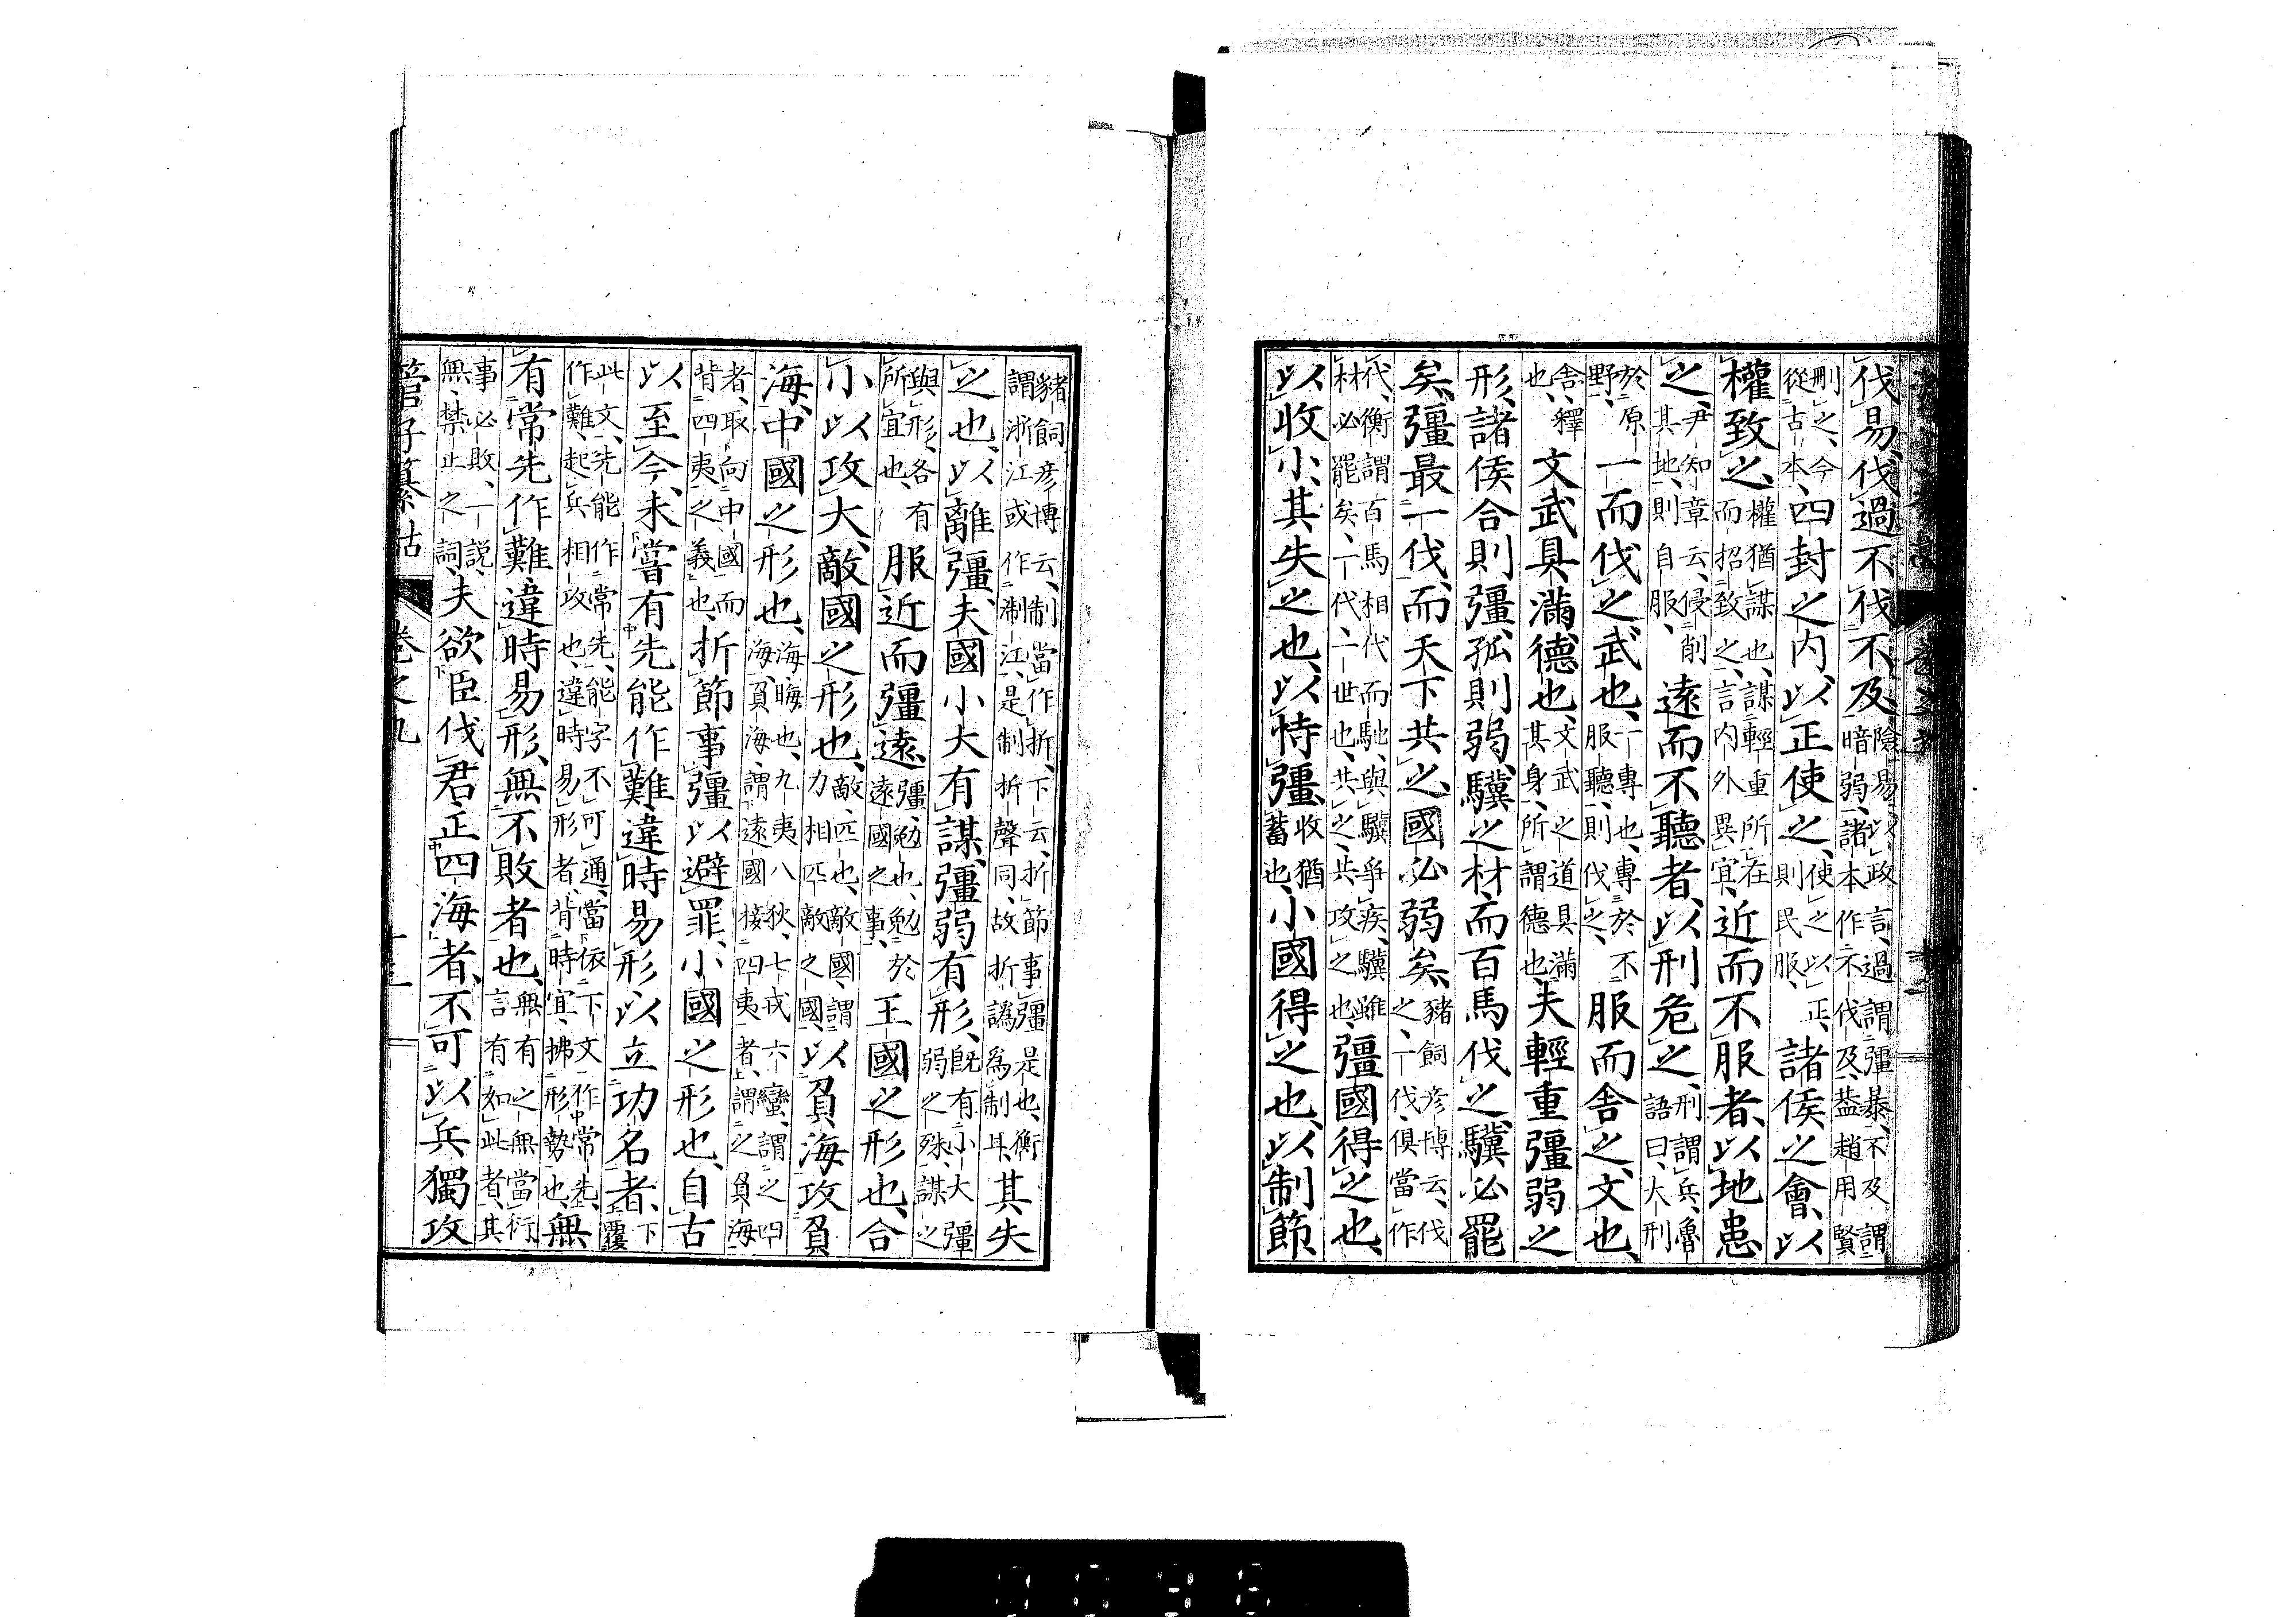 伐易、伐過不伐不及、險易、以政言、過謂彊暴、不及謂
暗弱、諸本作不伐及、葢趙用賢
刪之、今
從古本、四封之内、以正使之、使之以正、
則民服、諸侯之會、以
權致之、權猶謀也、謀輕重所在
而招致之、言内外異宜、近而不服者、以地患
之、尹知章云、侵削
其地、則自服、遠而不聽者、以刑危之、刑謂兵、魯
語曰、大刑
於原
野、一而伐之、武也、一專也、專於不
服聽、則伐之、服而舍之、文也、
舍、釋
也、文武具滿、德也、文武之道具滿
其身、所謂德也、夫輕重彊弱之
形、諸侯合則彊、孤則弱、驥之材、而百馬伐之、驥必罷
矣、彊最一伐、而天下共之、國必弱矣、豬飼彥博云、伐
之、一伐、俱當作
代、衡謂百馬相代而馳、與驥爭疾、驥雖
材必罷矣、一代、一世也、共之、共攻之也、彊國得之也、
以收小、其失之也、以恃彊、收猶
蓄也、小國得之也、以制節、
豬飼彥博云、制當作折、下云、折節事彊是也、衡
謂浙江或作淛江、是制折聲同、故折譌為制耳、其失
之也、以離彊、夫國小大有謀、彊弱有形、既有小大彊
弱之殊、謀之
與形、各有
所宜也、服近而彊遠、彊、勉也、勉於
遠國之事、王國之形也、合
小以攻大、敵國之形也、敵、匹也、敵國、謂
力相匹敵之國、以負海攻負
海、中國之形也、海晦也、九夷八狄、七戎六蠻、謂之四
海、負海、謂遠國接四夷者、謂之負海
者、取向中國而
背四夷之義也、折節事彊以避罪、小國之形也、自古
以至今、未嘗有先能作難、違時易形以立功名者、下
覆
此文、先能作常先、能字不可通、當依下文作常先、
作難、起兵相攻也、違時易形者、背時宜、拂形勢也、無
有常先作難違時易形、無不敗者也、無有之無當衍
言有如此者、其
事必敗、一説、
無、禁止之詞、夫欲臣伐君、正四海者、不可以兵獨攻
管子纂詁 卷之九